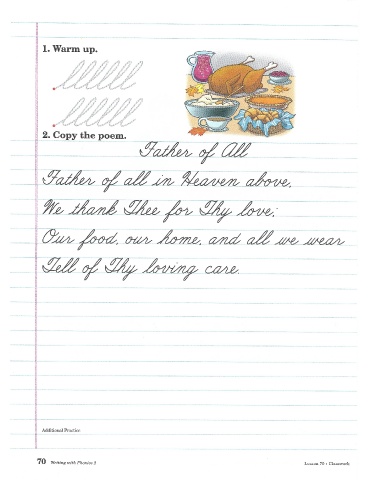 1. Warm up.
2. Copy the poem.
Father of All
Father of all in Heaven above,
We thank Thee for Thy love;
Our food, our home, and all we wear
Tell of Thy loving care.
Additional Practice
70 Writing with Phonics 3
Lesson 70 • Classwork